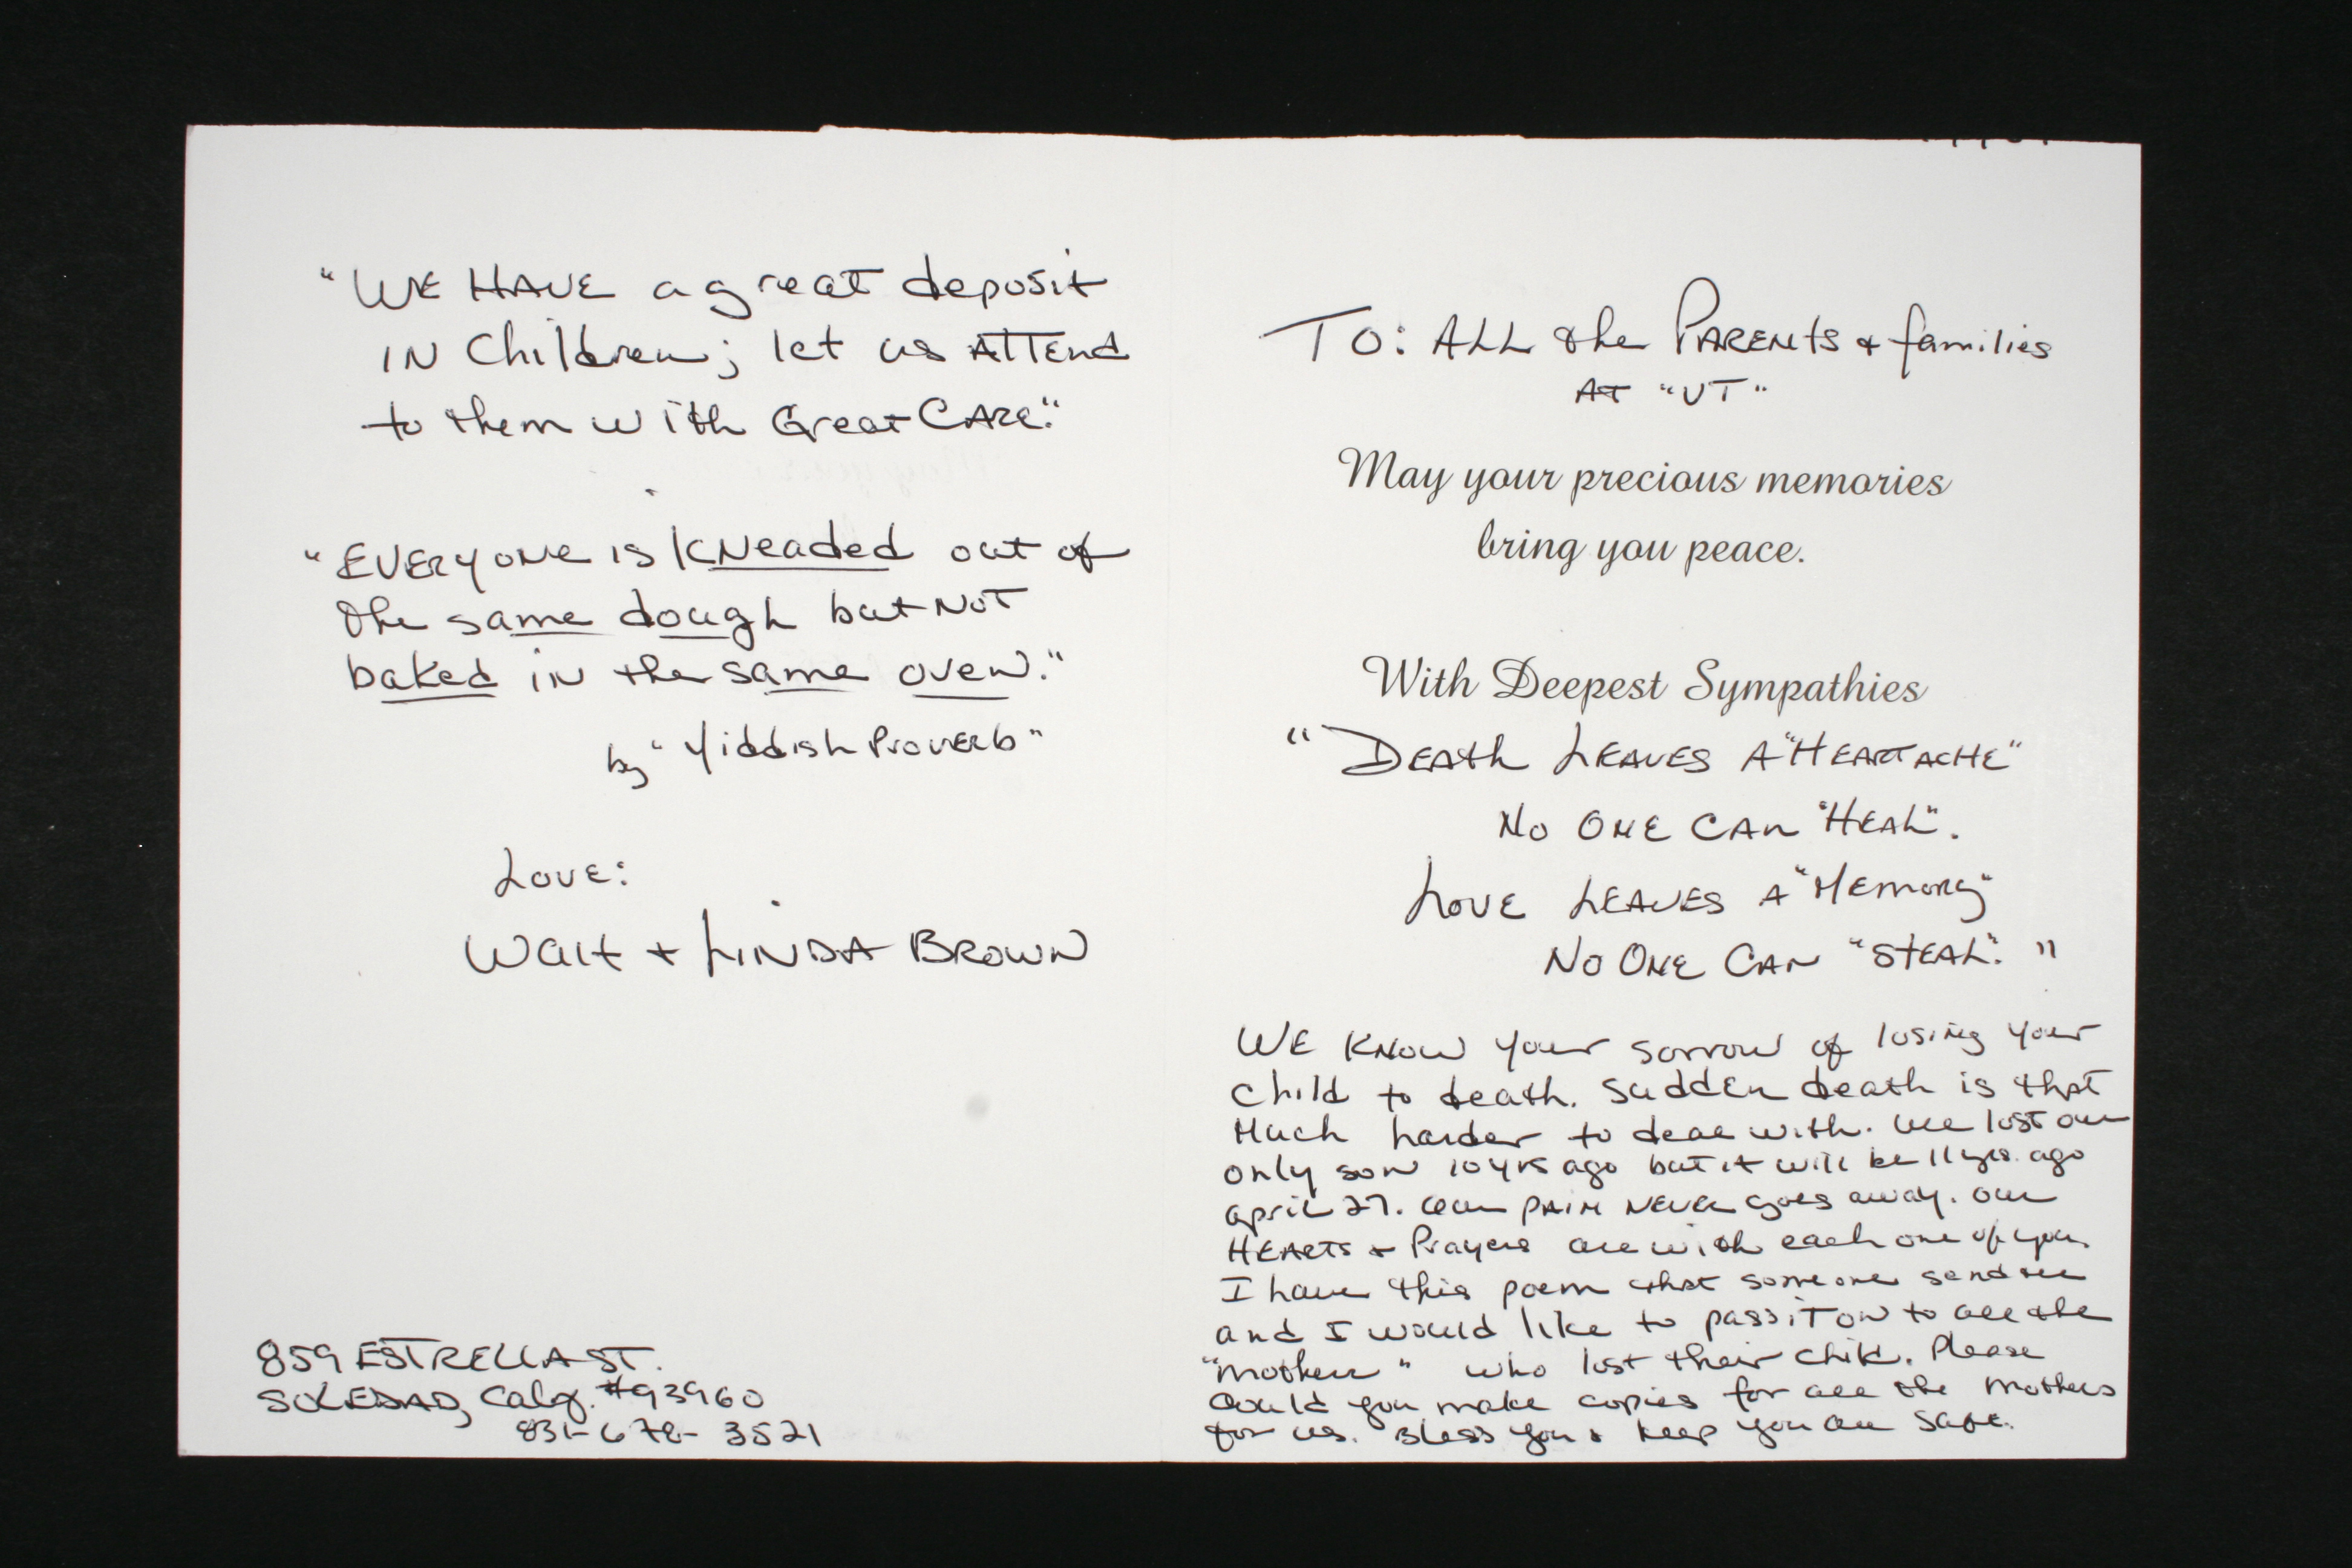 "WE HAVE a great deposit
IN Children; let us ATTEND
to them with Great CARE."
"EVERYONE is KNeaded out of
the same dough but NOT
baked iN the same oveN."
by "Yiddish ProvERb"
Love:
Walt + LINDA BROWN
859 ESTRELLA ST.
SOLEDAD, Calif. #93960
831-678-3521
TO: ALL the PARENtS & families
AT "VT"
May your precious memories
bring you peace.
With Deepest Sympathies
"DEAth LEAVES A "HEARTACHE"
No ONE CAN "HEAL".
Love LEAVES A "MEmory"
No ONE CAN "STEAL"."
WE KNow your sorrow of losing your
child to death. SuddEn death is thAT
Much harder to deal with. We lost our
only soN 10 yrs ago but it will be 11 yrs. ago
april 27. Our pAIN NEVER goes away. Our
HEARTS & Prayers are with each one of you.
I have this poem that someone send me
and I would like to pass iT oN to all the
"Mothers" who lost their child. Please
Could you make copies for all the Mothers
for us. Bless you & keep you all Safe.